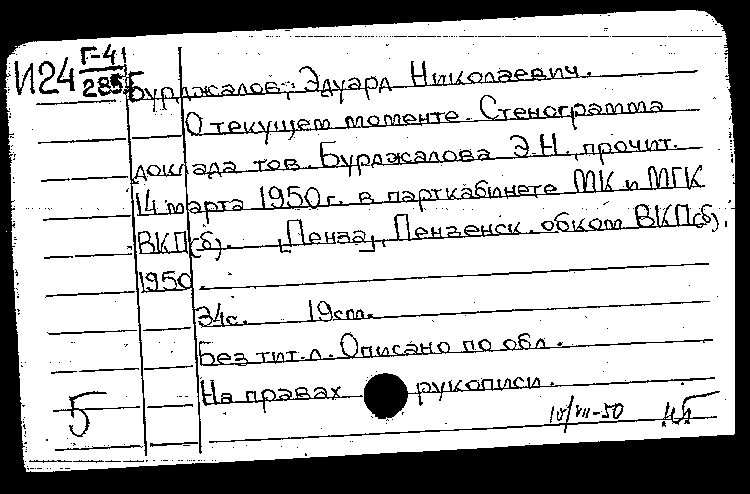 И24 Г-4
285
Бурджалов, Эдуард Николаевич.
О текущем моменте. Стенограмма
доклада тов. Бурджалова Э.Н., прочит.
14 марта 1950 г. в парткабинете МК и МГК
ВКП(б). [Пенза], Пензенск. обком ВКП(б),
1950.
34 с. 19 см.
Без тит. л. Описано по обл.
На правах рукописи.
Б
10/VII-50